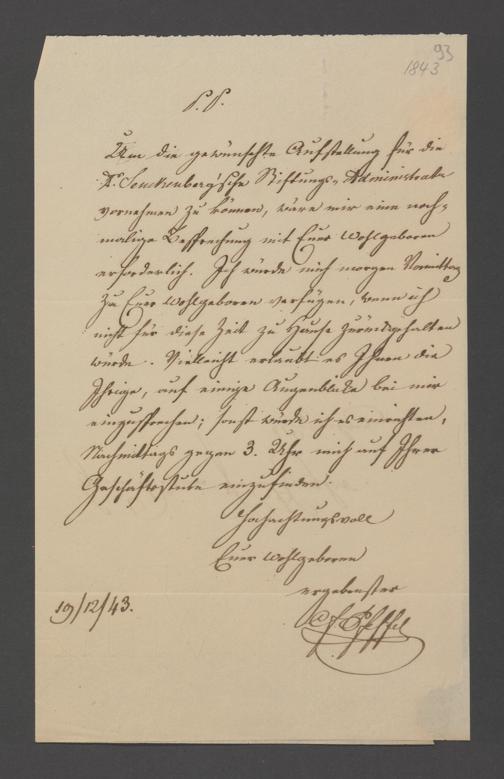 93
1843
P. P.
Um die gewünschte Aufstellung für die
Dr. Senckenberg'sche Stiftungs-Administration
vornehmen zu können, wäre mir eine noch-
malige Besprechung mit Euer Wohlgeboren
erforderlich. Ich würde mich morgen Vormittag
zu Euer Wohlgeboren verfügen, wenn ich
nicht für diese Zeit zu Hause zurückgehalten
würde. Vielleicht erlaubt es Ihnen die
Ihrige, auf einige Augenblicke bei mir
einzusprechen; sonst würde ich es einrichten,
Nachmittags gegen 3. Uhr mich auf Ihrer
Geschäftsstube einzufinden.
Hochachtungsvoll
Euer Wohlgeboren
ergebenster
19/12/43.